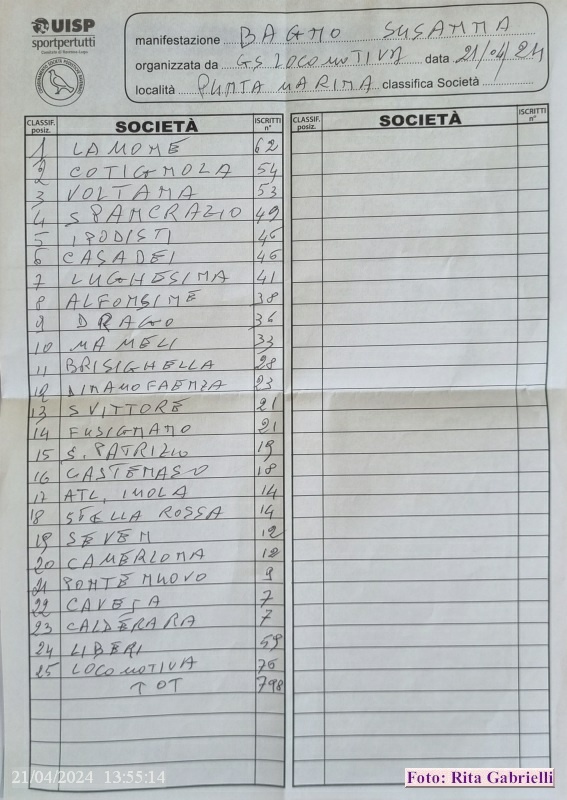 UISP
sportpertutti
Comitato di Ravenna-Lugo
manifestazione BAGNO SUSANNA
organizzata da GS LOCOMOTIVA data 21/04/24
località PUNTA MARINA classifica Società
CLASSIF. posiz. SOCIETÀ ISCRITTI n° CLASSIF. posiz. SOCIETÀ ISCRITTI n°
1 LAMONE 62
2 COTIGNOLA 54
3 VOLTANA 53
4 SPANCRAZIO 49
5 IPODISTI 46
6 CASADEI 46
7 LUGHESINA 41
8 ALFONSINE 38
9 DRAGO 36
10 MAMELI 33
11 BRISIGHELLA 28
12 DINAMO FAENZA 23
13 S VITTORE 21
14 FUSIGNANO 21
15 S. PATRIZIO 19
16 CASTENASO 18
17 ATL, IMOLA 14
18 STELLA ROSSA 14
19 SEVEN 12
20 CAMERLONA 12
21 PONTE NUOVO 9
22 CAVEJA 7
23 CALDERARA 7
24 LIBERI 59
25 LOCOMOTIVA 76
TOT 798
21/04/2024 13:55:14
Foto: Rita Gabrielli